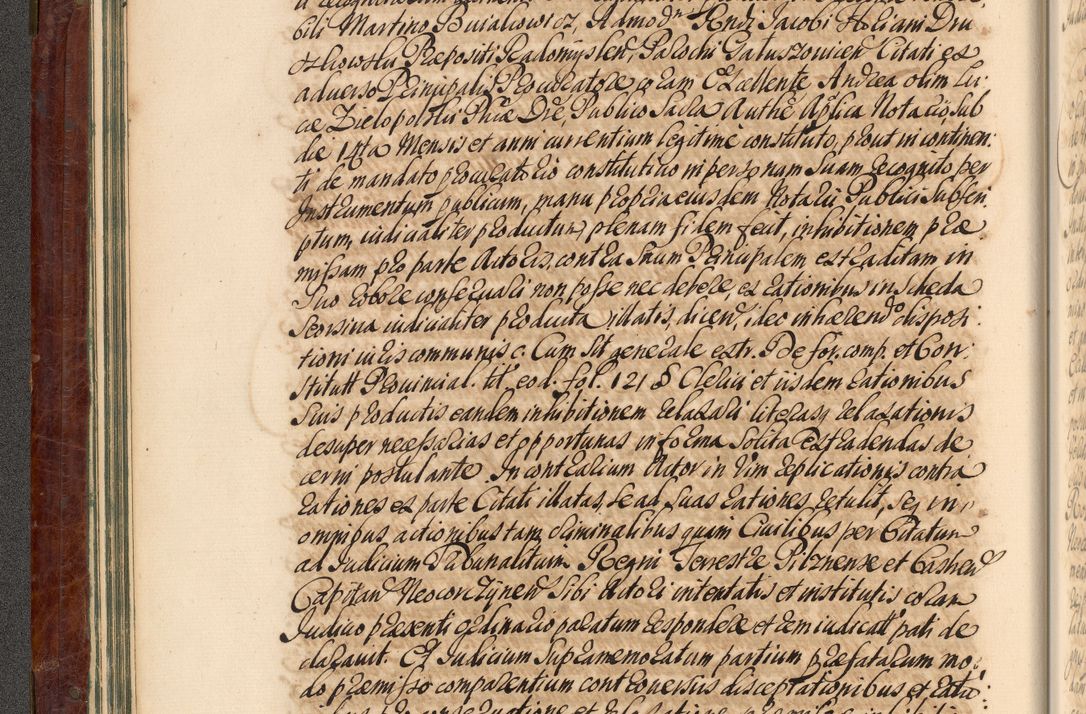 bili Martino Bujalowicz, Admodn Rndi Jacobi Floriani Dru
szkowski Præpositi Radomyslen, Parochi Gatuszovicen Citati ex
adverso Principalis Procuratore, coram Excellente Andrea olim Lu-
cæ Zielopolski Phiæ Dre Publico Sacra Authe Aplica Notario, sub
die 14ta Mensis et anni currentium legitime constituto, prout in continen:
ti de mandato procuratorio constitutivo in personam suam recognito, per
Instrumentum publicum, manu propria eiusdem Notarii Publici subscri
ptum, iudicialiter productum, plenam fidem fecit, inhibitionem præ
missam pro parte Actoris, contra suum Principalem extraditam in
suo robore conservari non posse nec debere, ex rationibus in scheda
seorsiva iudicialiter producta, illatis, dicen, ideo inhærend disposi
tioni iuris communis c. Cum sit generale extr. De for. comp. et Con
stitutt Provincial. tit. eod. fol. 121 § Clerici et iisdem rationibus
suis productis eandem inhibitionem relaxari literasq relaxationis
desuper necessarias et opportunas in forma solita extradendas de
cerni postulante. In contrarium Actor in vim replicationis contra
rationes ex parte Citati illatas, se ad suas rationes retulit, seq in
omnibus, actionibus tam criminalibus quam Civilibus per Citatum
ad Judicium Tribunalitium Regni Terrestræ Pilznense et Castren
Capitan Neocorczynen sibi Actori intentatis et institutis coram
Judicio præsenti ordinario paratum respondere et rem iudicatt pati de
claravit. Et Judicium Supramemoratum partium præfatarum mo
do præmisso comparentium controversus disceptationibus et ratio: